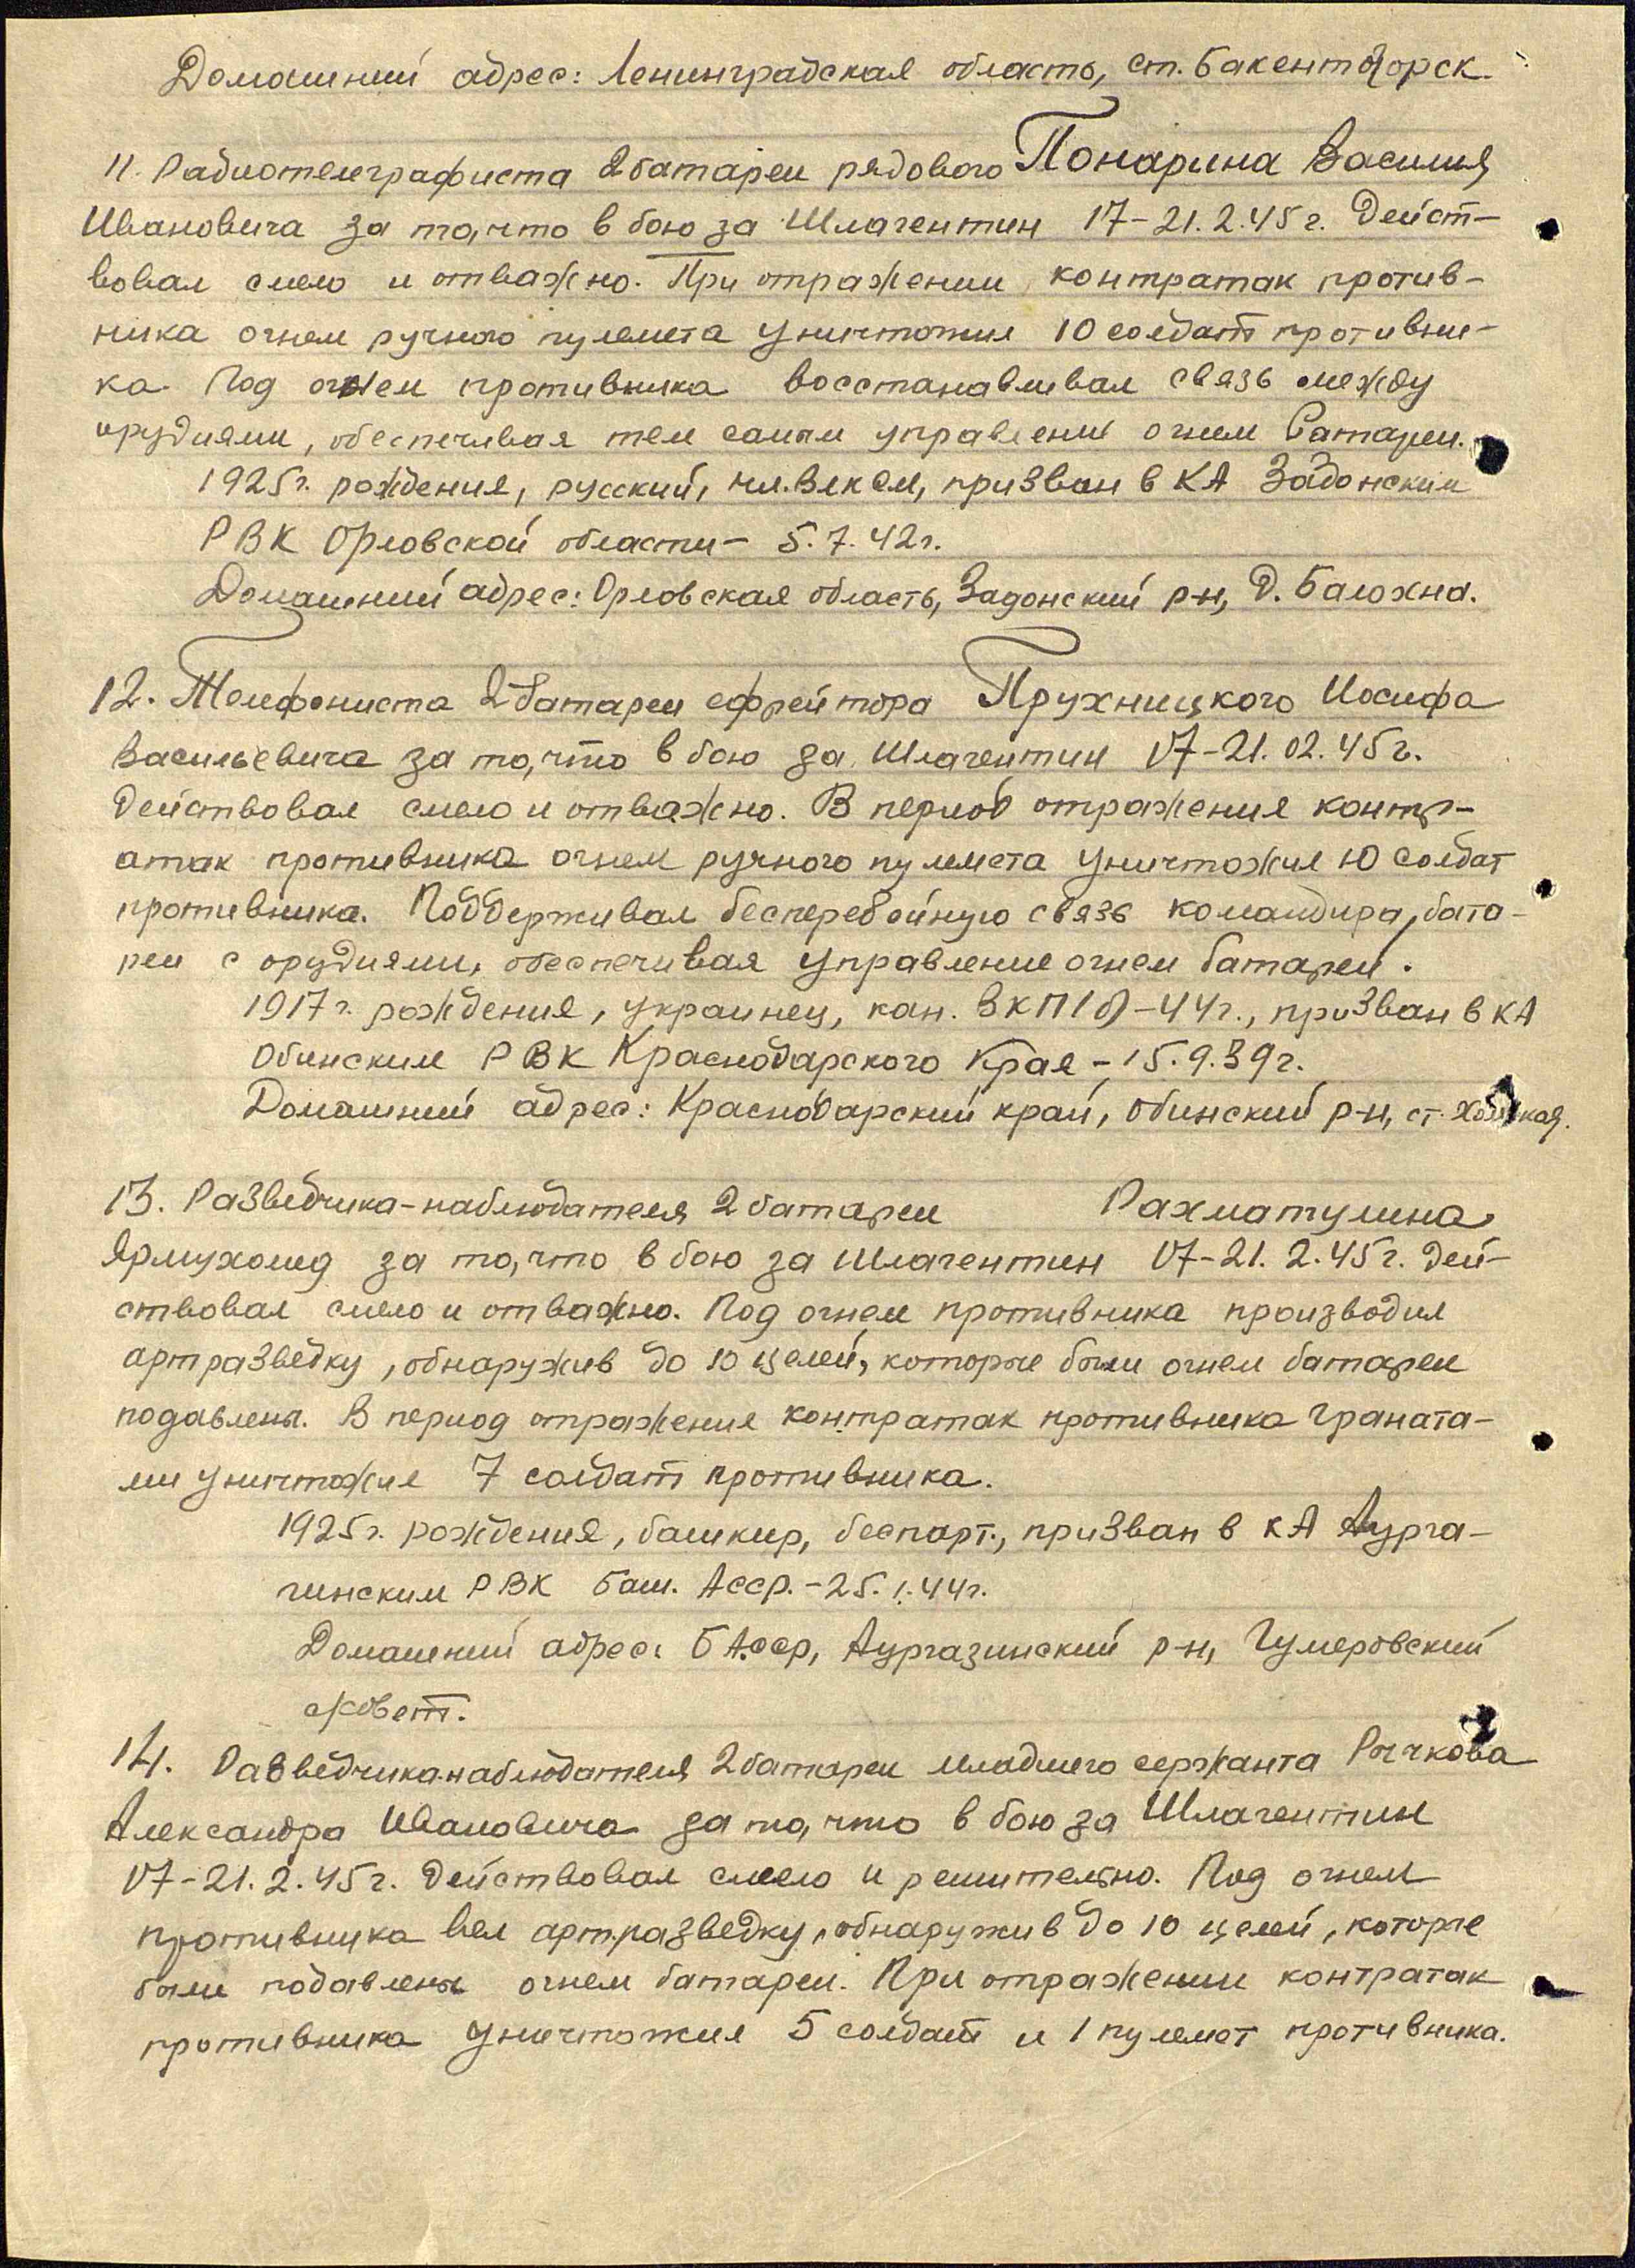 Домашний адрес: Ленинградская область, ст. Бакентогорск.
11. Радиотелеграфиста 2 батареи рядового Понарина Василия
Ивановича за то, что в бою за Шлагентин 17-21.2.45 г. дейст-
вовал смело и отважно. При отражении контратак против-
ника огнем ручного пулемета уничтожил 10 солдат противни-
ка. Под огнем противника восстанавливал связь между
орудиями, обеспечивая тем самым управление огнем батареи.
1925 г. рождения, русский, чл. ВЛКСМ, призван в КА Задонским
РВК Орловской области - 5.7.42 г.
Домашний адрес: Орловская область, Задонский р-н, д. Балохна.
12. Телефониста 2 батареи ефрейтора Прухницкого Иосифа
Васильевича за то, что в бою за Шлагентин 17-21.02.45 г.
действовал смело и отважно. В период отражения контр-
атак противника огнем ручного пулемета уничтожил 10 солдат
противника. Поддерживал бесперебойную связь командира бата-
реи с орудиями, обеспечивая управление огнем батареи.
1917 г. рождения, украинец, кан. ВКП(б) - 44 г., призван в КА
Обинским РВК Краснодарского края - 15.9.39 г.
Домашний адрес: Краснодарский край, Обинский р-н, ст.
13. Разведчика-наблюдателя 2 батареи Рахматулина
Ярмухомед за то, что в бою за Шлагентин 17-21.2.45 г. дей-
ствовал смело и отважно. Под огнем противника производил
артразведку, обнаружив до 10 целей, которые были огнем батареи
подавлены. В период отражения контратак противника граната-
ми уничтожил 7 солдат противника.
1925 г. рождения, башкир, беспарт., призван в КА Аурга-
зинским РВК Баш. АССР. - 25.1.44 г.
Домашний адрес: БАССР, Аургазинский р-н, Гумеровский
с/совет.
14. Разведчика-наблюдателя 2 батареи младшего сержанта Рычкова
Александра Ивановича за то, что в бою за Шлагентин
17-21.2.45 г. действовал смело и решительно. Под огнем
противника вел артразведку, обнаружив до 10 целей, которые
были подавлены огнем батареи. При отражении контратак
противника уничтожил 5 солдат и 1 пулемет противника.